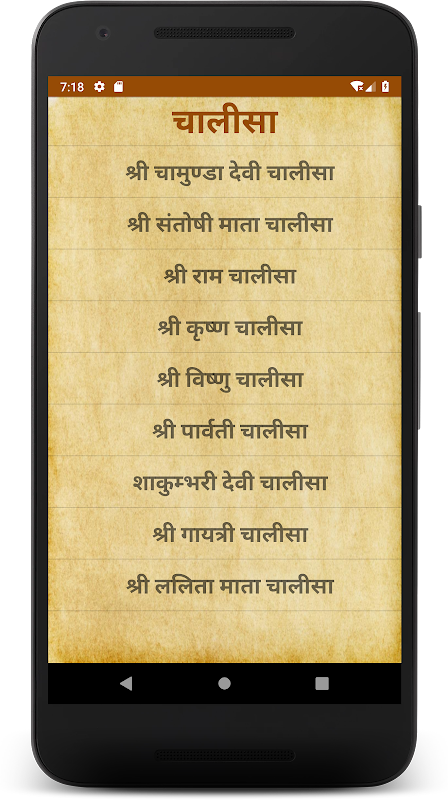 7:18
चालीसा
श्री चामुण्डा देवी चालीसा
श्री संतोषी माता चालीसा
श्री राम चालीसा
श्री कृष्ण चालीसा
श्री विष्णु चालीसा
श्री पार्वती चालीसा
शाकुम्भरी देवी चालीसा
श्री गायत्री चालीसा
श्री ललिता माता चालीसा